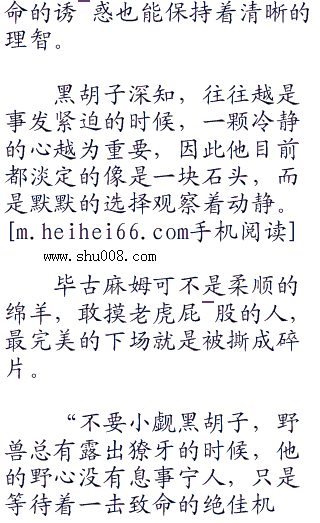 命的诱¯惑也能保持着清晰的
理智。
黑胡子深知，往往越是
事发紧迫的时候，一颗冷静
的心越为重要，因此他目前
都淡定的像是一块石头，而
是默默的选择观察着动静。
[m.heihei66.com手机阅读]
www.shu008.com
毕古麻姆可不是柔顺的
绵羊，敢摸老虎屁¯股的人，
最完美的下场就是被撕成碎
片。
“不要小觑黑胡子，野
兽总有露出獠牙的时候，他
的野心没有息事宁人，只是
等待着一击致命的绝佳机